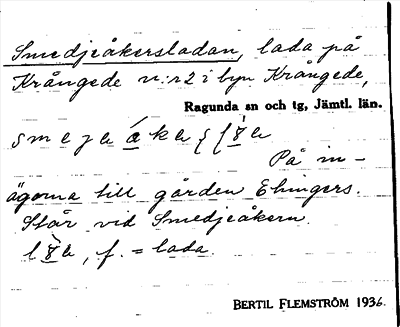 Smedjeåkersladan, lada på
Krångede nr: r2 i byn Krångede,
Ragunda sn och tg, Jämtl. län.
På in-
ägorna till gården Ehingers.
Står vid Smedjeåkern.
f. = lada.
BERTIL FLEMSTRÖM 1936.